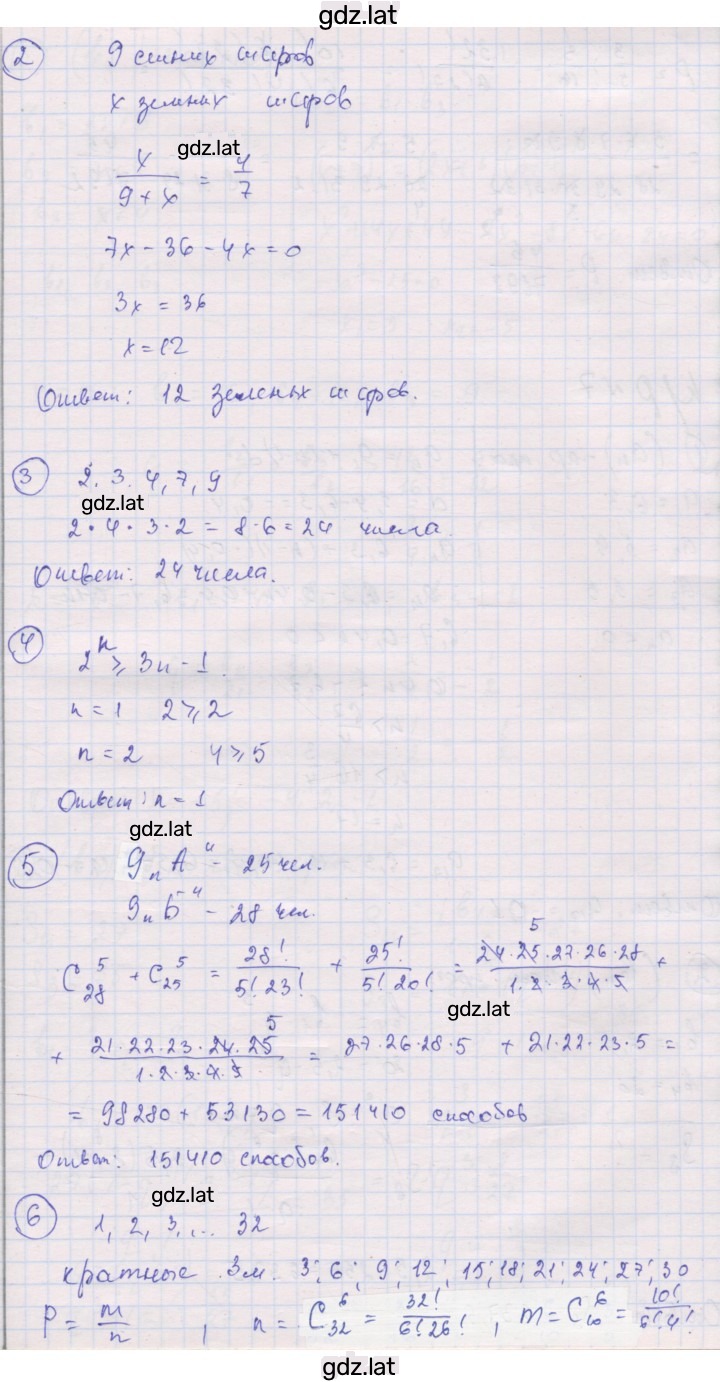 gdz.lat
2 9 синих шаров
x зеленых шаров
gdz.lat
x/(9+x) = 4/7
7x - 36 - 4x = 0
3x = 36
x = 12
Ответ: 12 зеленых шаров.
3 2, 3, 4, 7, 9
gdz.lat
2 · 4 · 3 · 2 = 8 · 6 = 24 числа.
Ответ: 24 числа.
4 2^n ⩾ 3n - 1.
n = 1 2 ⩾ 2
n = 2 4 ⩾ 5
Ответ: n = 1
gdz.lat
5 9 "А" - 25 чел.
9 "Б" - 28 чел.
C_28^5 + C_25^5 = 28!/(5! 23!) + 25!/(5! 20!) = (24·25·27·26·28)/(1·2·3·4·5) +
gdz.lat
+ (21·22·23·24·25)/(1·2·3·4·5) = 27·26·28·5 + 21·22·23·5 =
= 98280 + 53130 = 151410 способов
Ответ: 151410 способов.
gdz.lat
6 1, 2, 3, ... 32
кратные 3м. 3; 6; 9; 12; 15; 18; 21; 24; 27; 30
P = m/n , n = C_32^6 = 32!/(6! 26!) , m = C_10^6 = 10!/(6! 4!)
gdz.lat